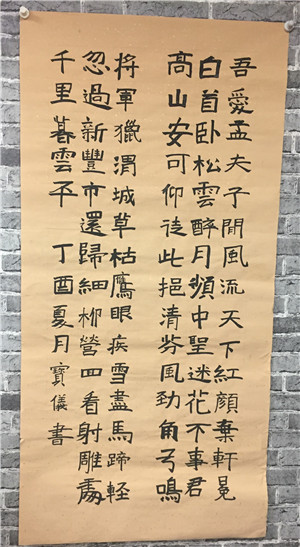 吾愛孟夫子閒風流天下紅顏棄軒冕
白首卧松雲醉月頻中聖迷花不事君
高山安可仰徒此挹清芬風勁角弓鳴
將軍獵渭城草枯鷹眼疾雪盡馬蹄輕
忽過新豐市還歸細柳營回看射雕處
千里暮雲平 丁酉夏月寶儀書